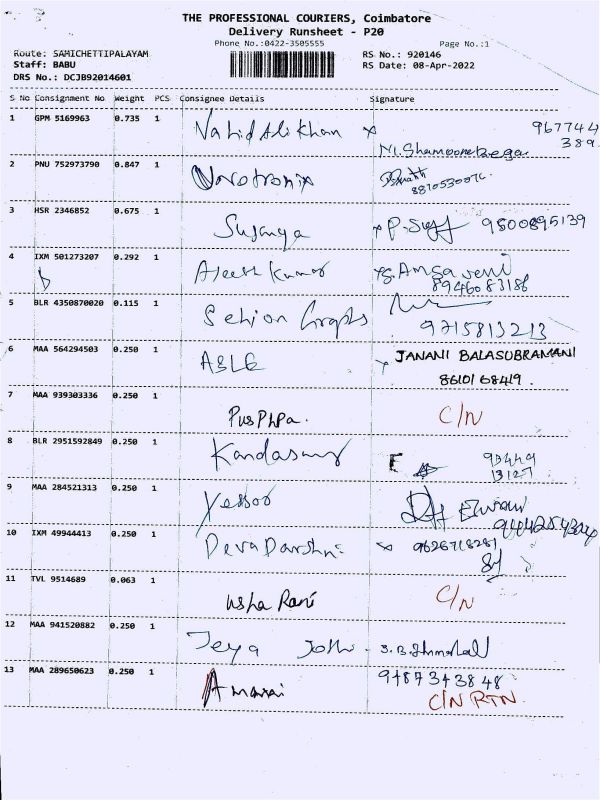 THE PROFESSIONAL COURIERS, Coimbatore
Delivery Runsheet - P20
Phone No.:0422-3505555
Page No.:1
Route: SAMICHETTIPALAYAM
RS No.: 920146
Staff: BABU
RS Date: 08-Apr-2022
DRS No.: DCJB92014601
S No Consignment No Weight PCS Consignee Details Signature
1 GPM 5169963 0.735 1 Nahid Ali Khan x 967744
389
2 PNU 752973790 0.847 1 Novotronix
8870530076
3 HSR 2346852 0.675 1 Sujanya 9500895139
4 IXM 501273207 0.292 1 Ajeesh Kumar
8946083186
5 BLR 4350870020 0.115 1 Sehion Graphs
9715813213
6 MAA 564294503 0.250 1 ABLE JANANI BALASUBRAMANI
8610168419.
7 MAA 939303336 0.250 1 PusPhpa. C/N
8 BLR 2951592849 0.250 1 Kandasamy 99449
13127
9 MAA 284521313 0.250 1
10 IXM 49944413 0.250 1 DevaDarshni x 9626718281
11 TVL 9514689 0.063 1 Usha Rani C/N
12 MAA 941520882 0.250 1 Jeya Jothi
13 MAA 289650623 0.250 1 9787343848
C/N RTN